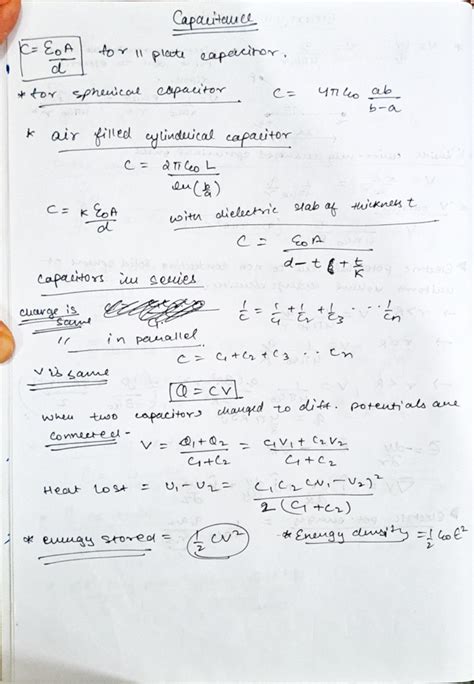 Capacitance
C = ε0A/d for || plate capacitor.
* for spherical capacitor C = 4πε0 ab/b-a
* air filled cylinderical capacitor
C = 2πε0L/ln(b/a)
C = K ε0A/d with dielectric slab of thickness t
C = ε0A/d-t+t/K
Capacitors in series
charge is same 1/C = 1/C1 + 1/C2 + 1/C3 ... 1/Cn
" in parallel
C = C1 + C2 + C3 ... Cn
V is same
Q = CV
when two capacitors charged to diff. potentials are
connected - V = Q1+Q2/C1+C2 = C1V1+C2V2/C1+C2
Heat lost = U1-U2 = C1C2(V1-V2)²/2(C1+C2)
* energy stored = 1/2 CV² * Energy density = 1/2 ε0E²